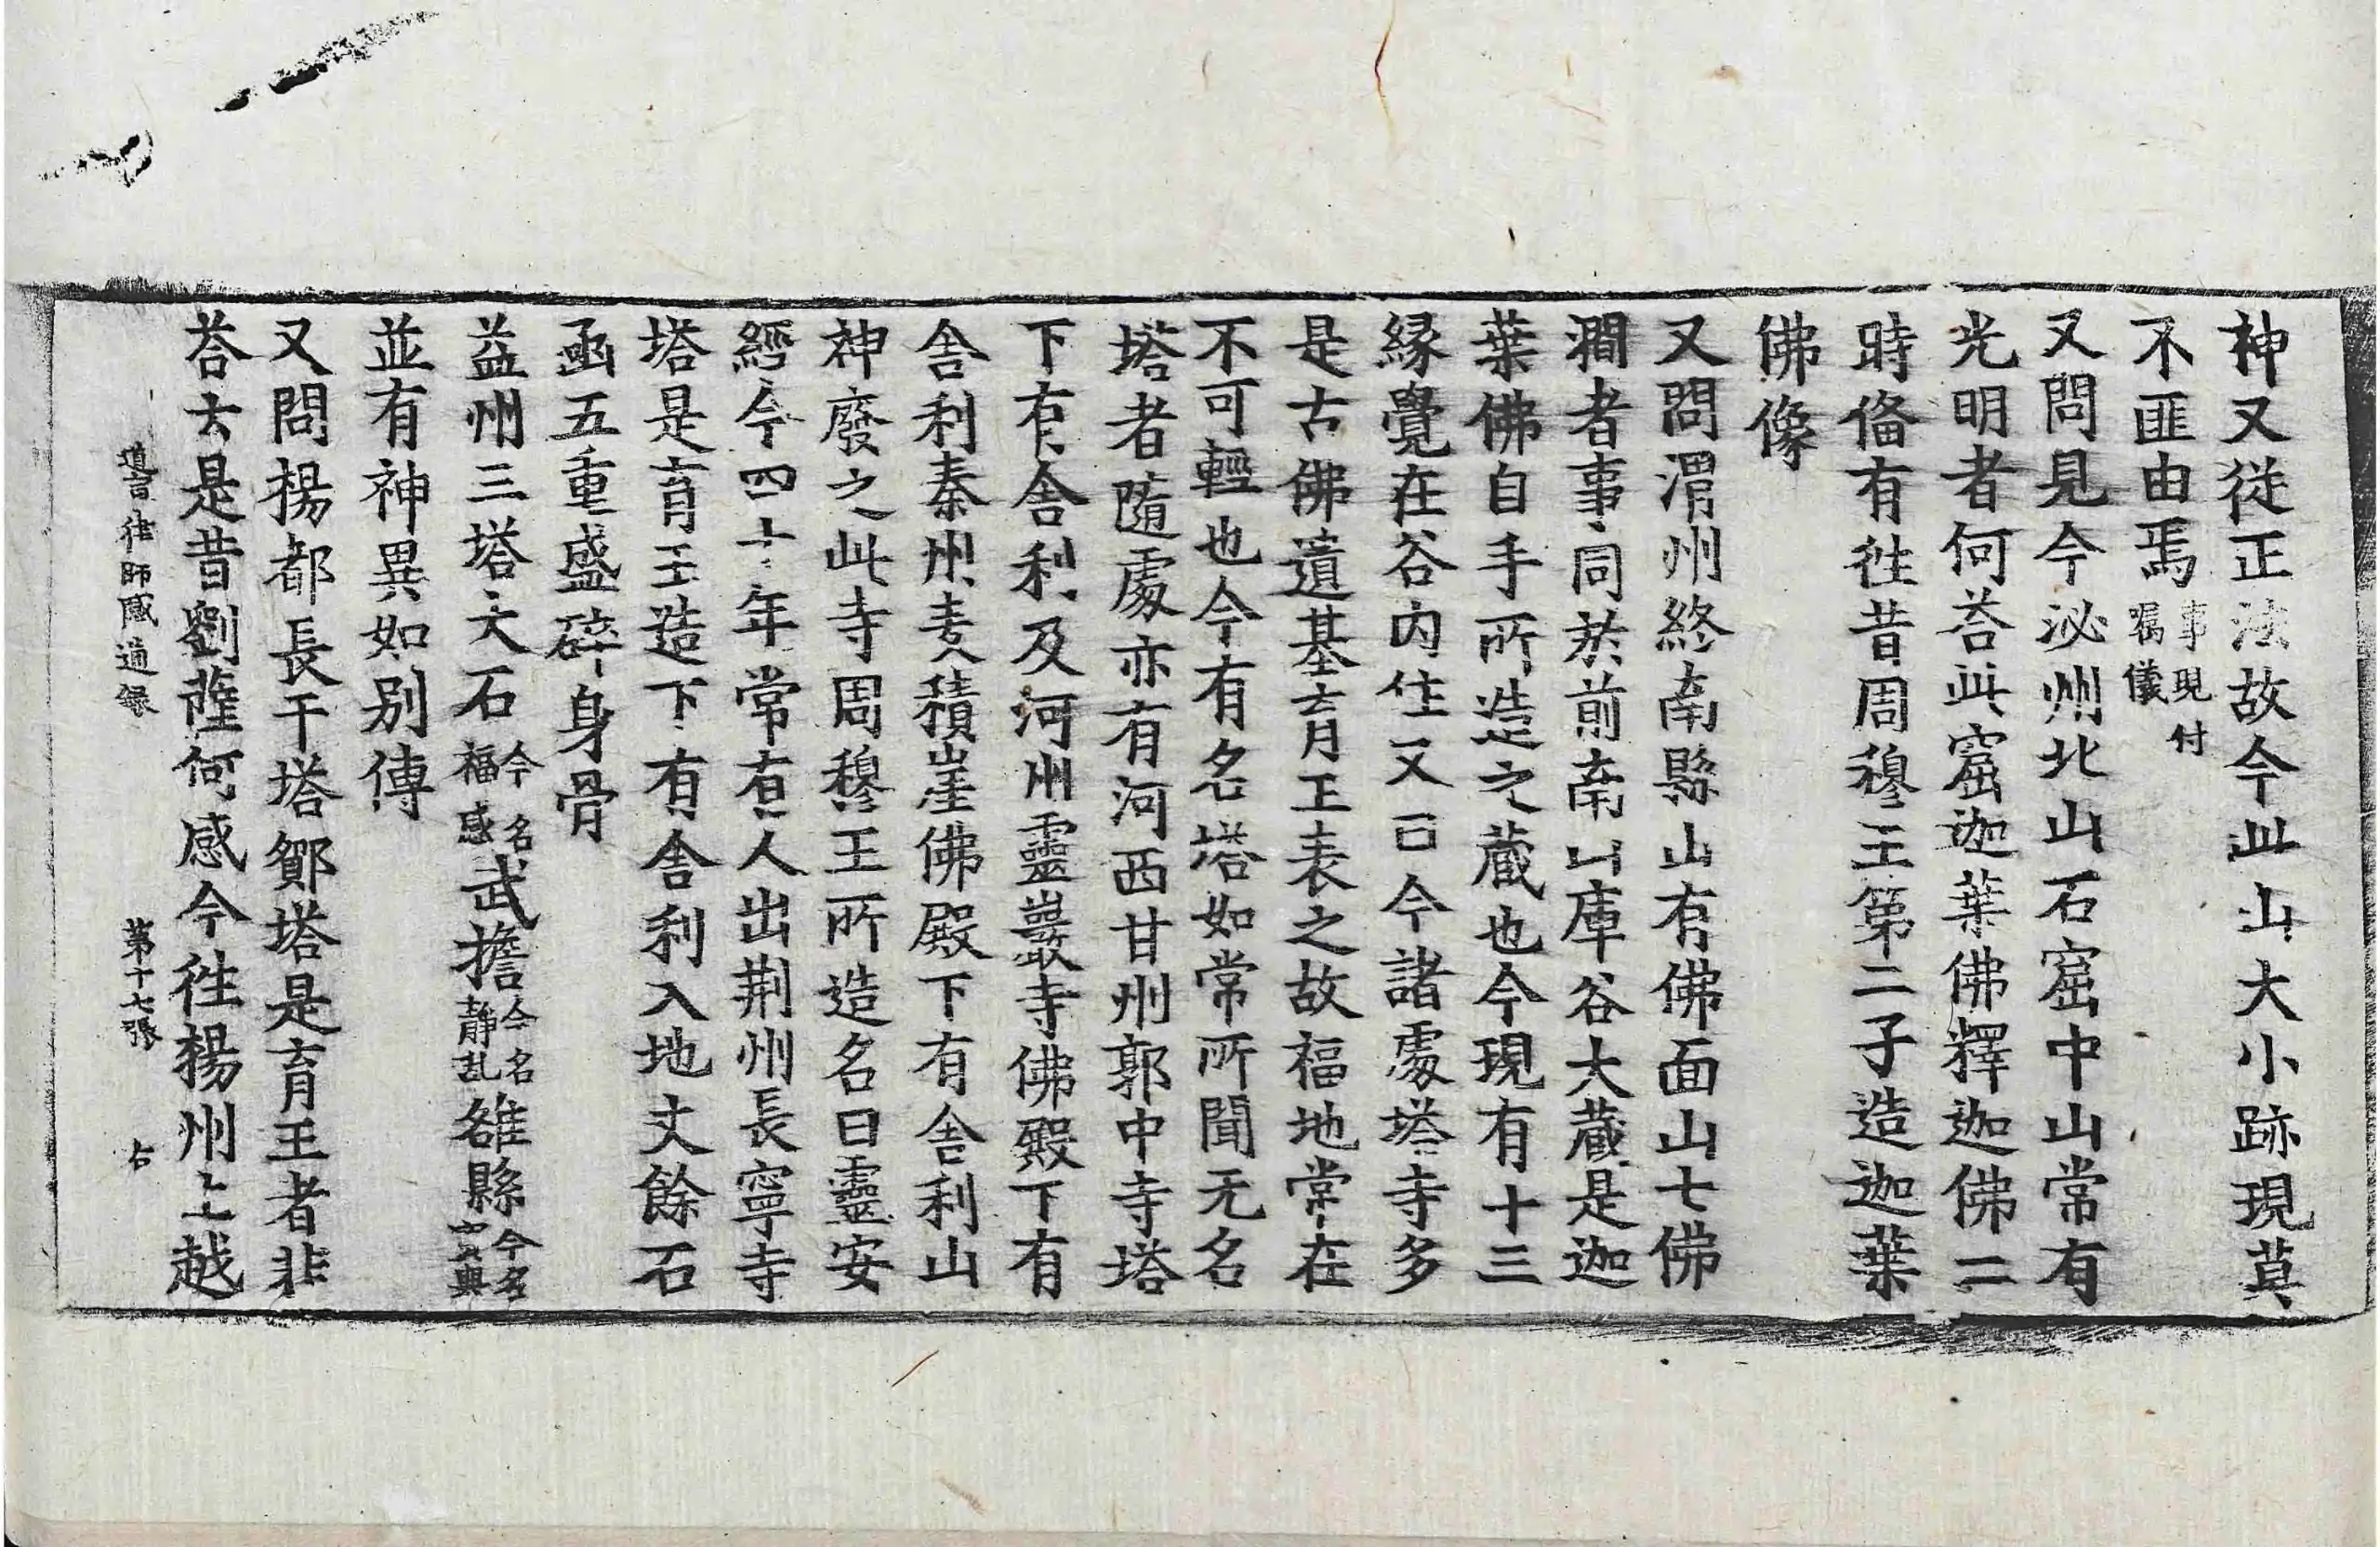 神又從正法故今此山大小跡現莫
不匪由焉事現付囑儀
又問見今泌州北山石窟中山常有
光明者何荅此窟迦葉佛釋迦佛二
時俻有徃昔周穆王第二子造迦葉
佛像
又問渭州終南縣山有佛面山七佛
澗者事同於前南山庫谷大藏是迦
葉佛自手所造之藏也今現有十三
縁覺在谷内住又曰今諸處塔寺多
是古佛遺基育王表之故福地常在
不可輕也今有名塔如常所聞无名
塔者隨處亦有河西甘州郭中寺塔
下有舎利及河州靈巖寺佛殿下有
舎利秦州麦積崖佛殿下有舎利山
神廢之此寺周穆王所造名曰靈安
經今四十年常有人出荆州長寧寺
塔是育王造下有舎利入地丈餘石
函五重盛碎身骨
益州三塔大石今名福感武擔今名静乱雒縣今名
並有神異如別傳
又問楊都長干塔鄮塔是育王者非
荅云是昔劉薩何感今徃楊州上越
道宣律師感通録 第十七張 右